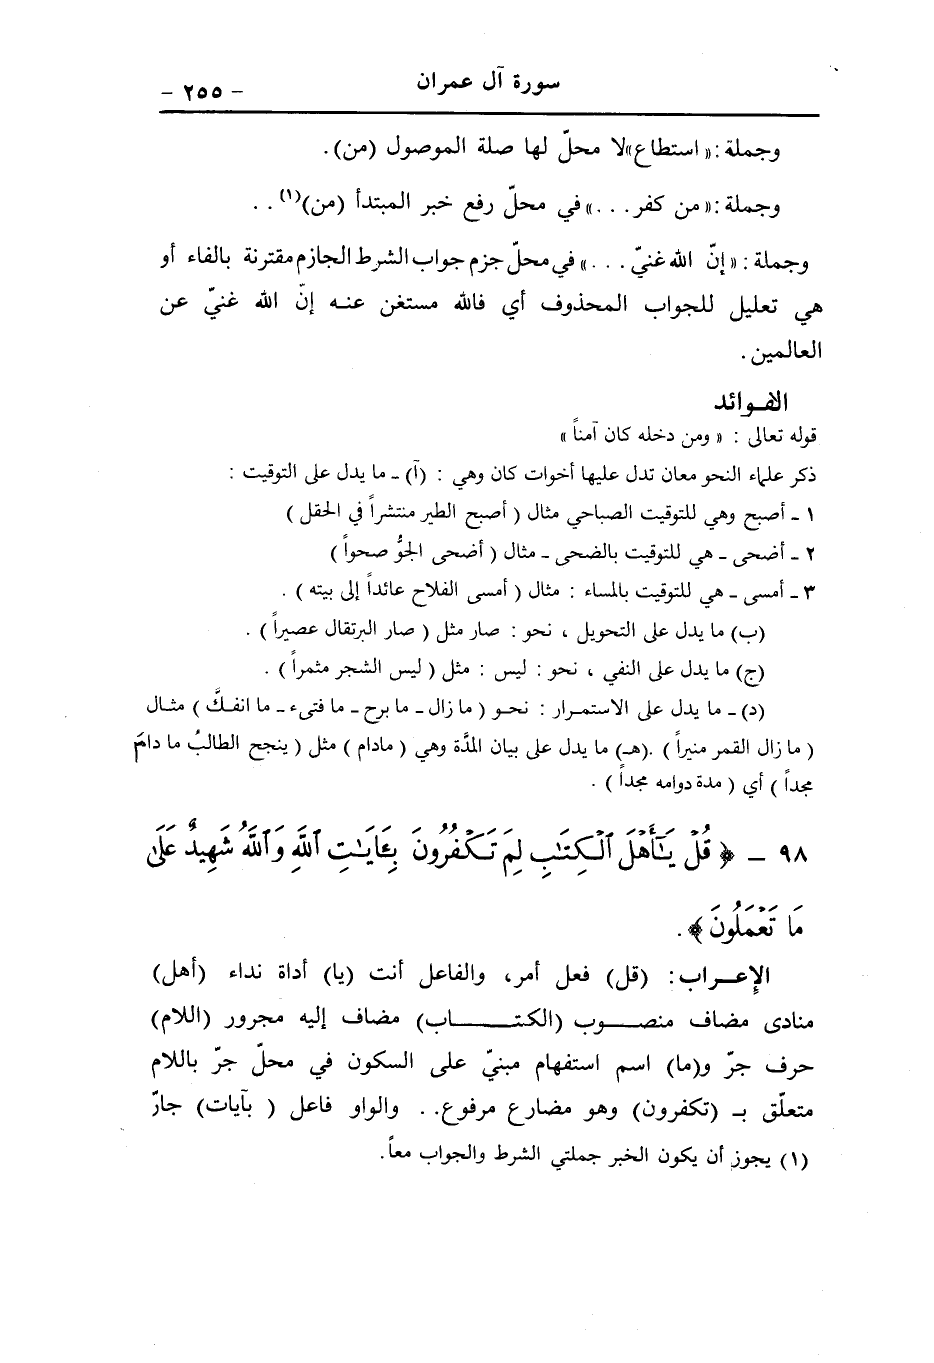 سورة آل عمران - ٢٥٥ -
وجملة : « استطاع » لا محلّ لها صلة الموصول (من) .
وجملة : « من كفر . . . » في محلّ رفع خبر المبتدأ (من)(١) . .
وجملة : « إنّ الله غنيّ . . . » في محلّ جزم جواب الشرط الجازم مقترنة بالفاء أو
هي تعليل للجواب المحذوف أي فالله مستغن عنه إنّ الله غنيّ عن
العالمين .
الفوائد
قوله تعالى : « ومن دخله كان آمناً »
ذكر علماء النحو معان تدل عليها أخوات كان وهي : (آ) ـ ما يدل على التوقيت :
١ ـ أصبح وهي للتوقيت الصباحي مثال ( أصبح الطير منتشراً في الحقل )
٢ ـ أضحى ـ هي للتوقيت بالضحى ـ مثال ( أضحى الجوُّ صحواً )
٣ ـ أمسى ـ هي للتوقيت بالمساء : مثال ( أمسى الفلاح عائداً إلى بيته ) .
(ب) ما يدل على التحويل ، نحو : صار مثل ( صار البرتقال عصيراً ) .
(ج) ما يدل على النفي ، نحو : ليس : مثل ( ليس الشجر مثمراً ) .
(د) ـ ما يدل على الاستمرار : نحو ( ما زال ـ ما برح ـ ما فتىء ـ ما انفكَّ ) مثال
( ما زال القمر منيراً ) . (هـ) ما يدل على بيان المدَّة وهي ( مادام ) مثل ( ينجح الطالبُ ما دامَ
مجداً ) أي ( مدة دوامه مجداً ) .
٩٨ ـ ﴿ قُلْ يَٰٓأَهْلَ ٱلْكِتَٰبِ لِمَ تَكْفُرُونَ بِـَٔايَٰتِ ٱللَّهِ وَٱللَّهُ شَهِيدٌ عَلَىٰ
مَا تَعْمَلُونَ ﴾ .
الإعراب : (قل) فعل أمر، والفاعل أنت (يا) أداة نداء (أهل)
منادى مضاف منصوب (الكتاب) مضاف إليه مجرور (اللام)
حرف جرّ و(ما) اسم استفهام مبنيّ على السكون في محلّ جرّ باللام
متعلّق بـ (تكفرون) وهو مضارع مرفوع . . والواو فاعل ( بآيات) جارّ
(١) يجوز أن يكون الخبر جملتي الشرط والجواب معاً .